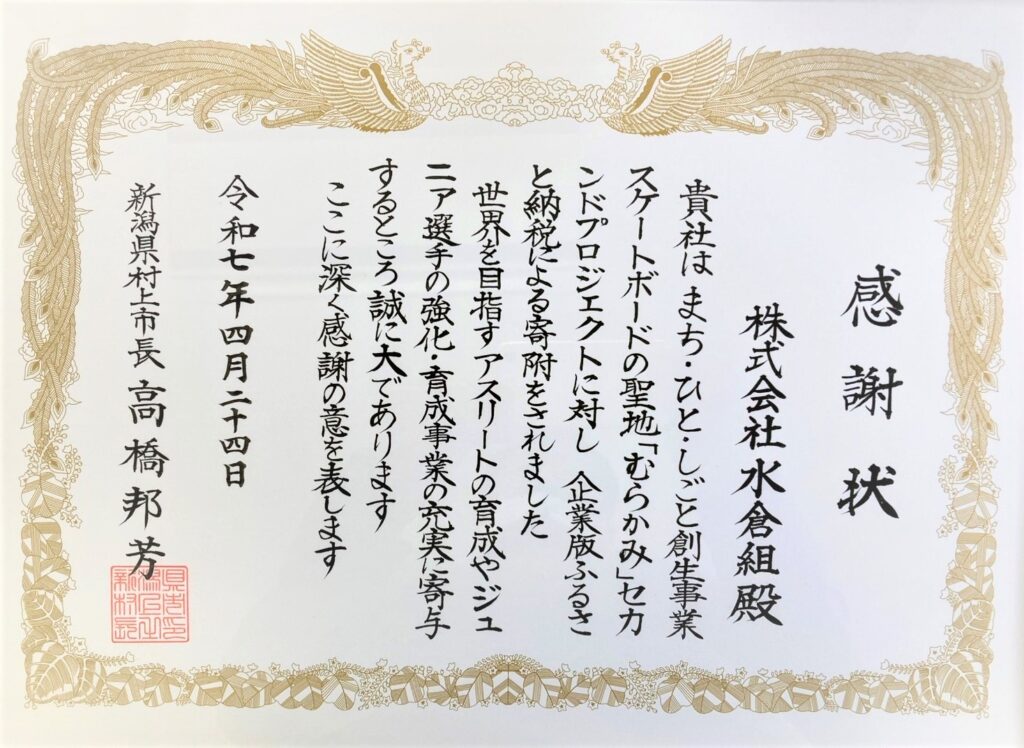 感謝状
株式会社水倉組殿
貴社は まち・ひと・しごと創生事業
スケートボードの聖地「むらかみ」セカ
ンドプロジェクトに対し 企業版ふるさ
と納税による寄附をされました
世界を目指すアスリートの育成やジュ
ニア選手の強化・育成事業の充実に寄与
するところ誠に大であります
ここに深く感謝の意を表します
令和七年四月二十四日
新潟県村上市長 高橋邦芳